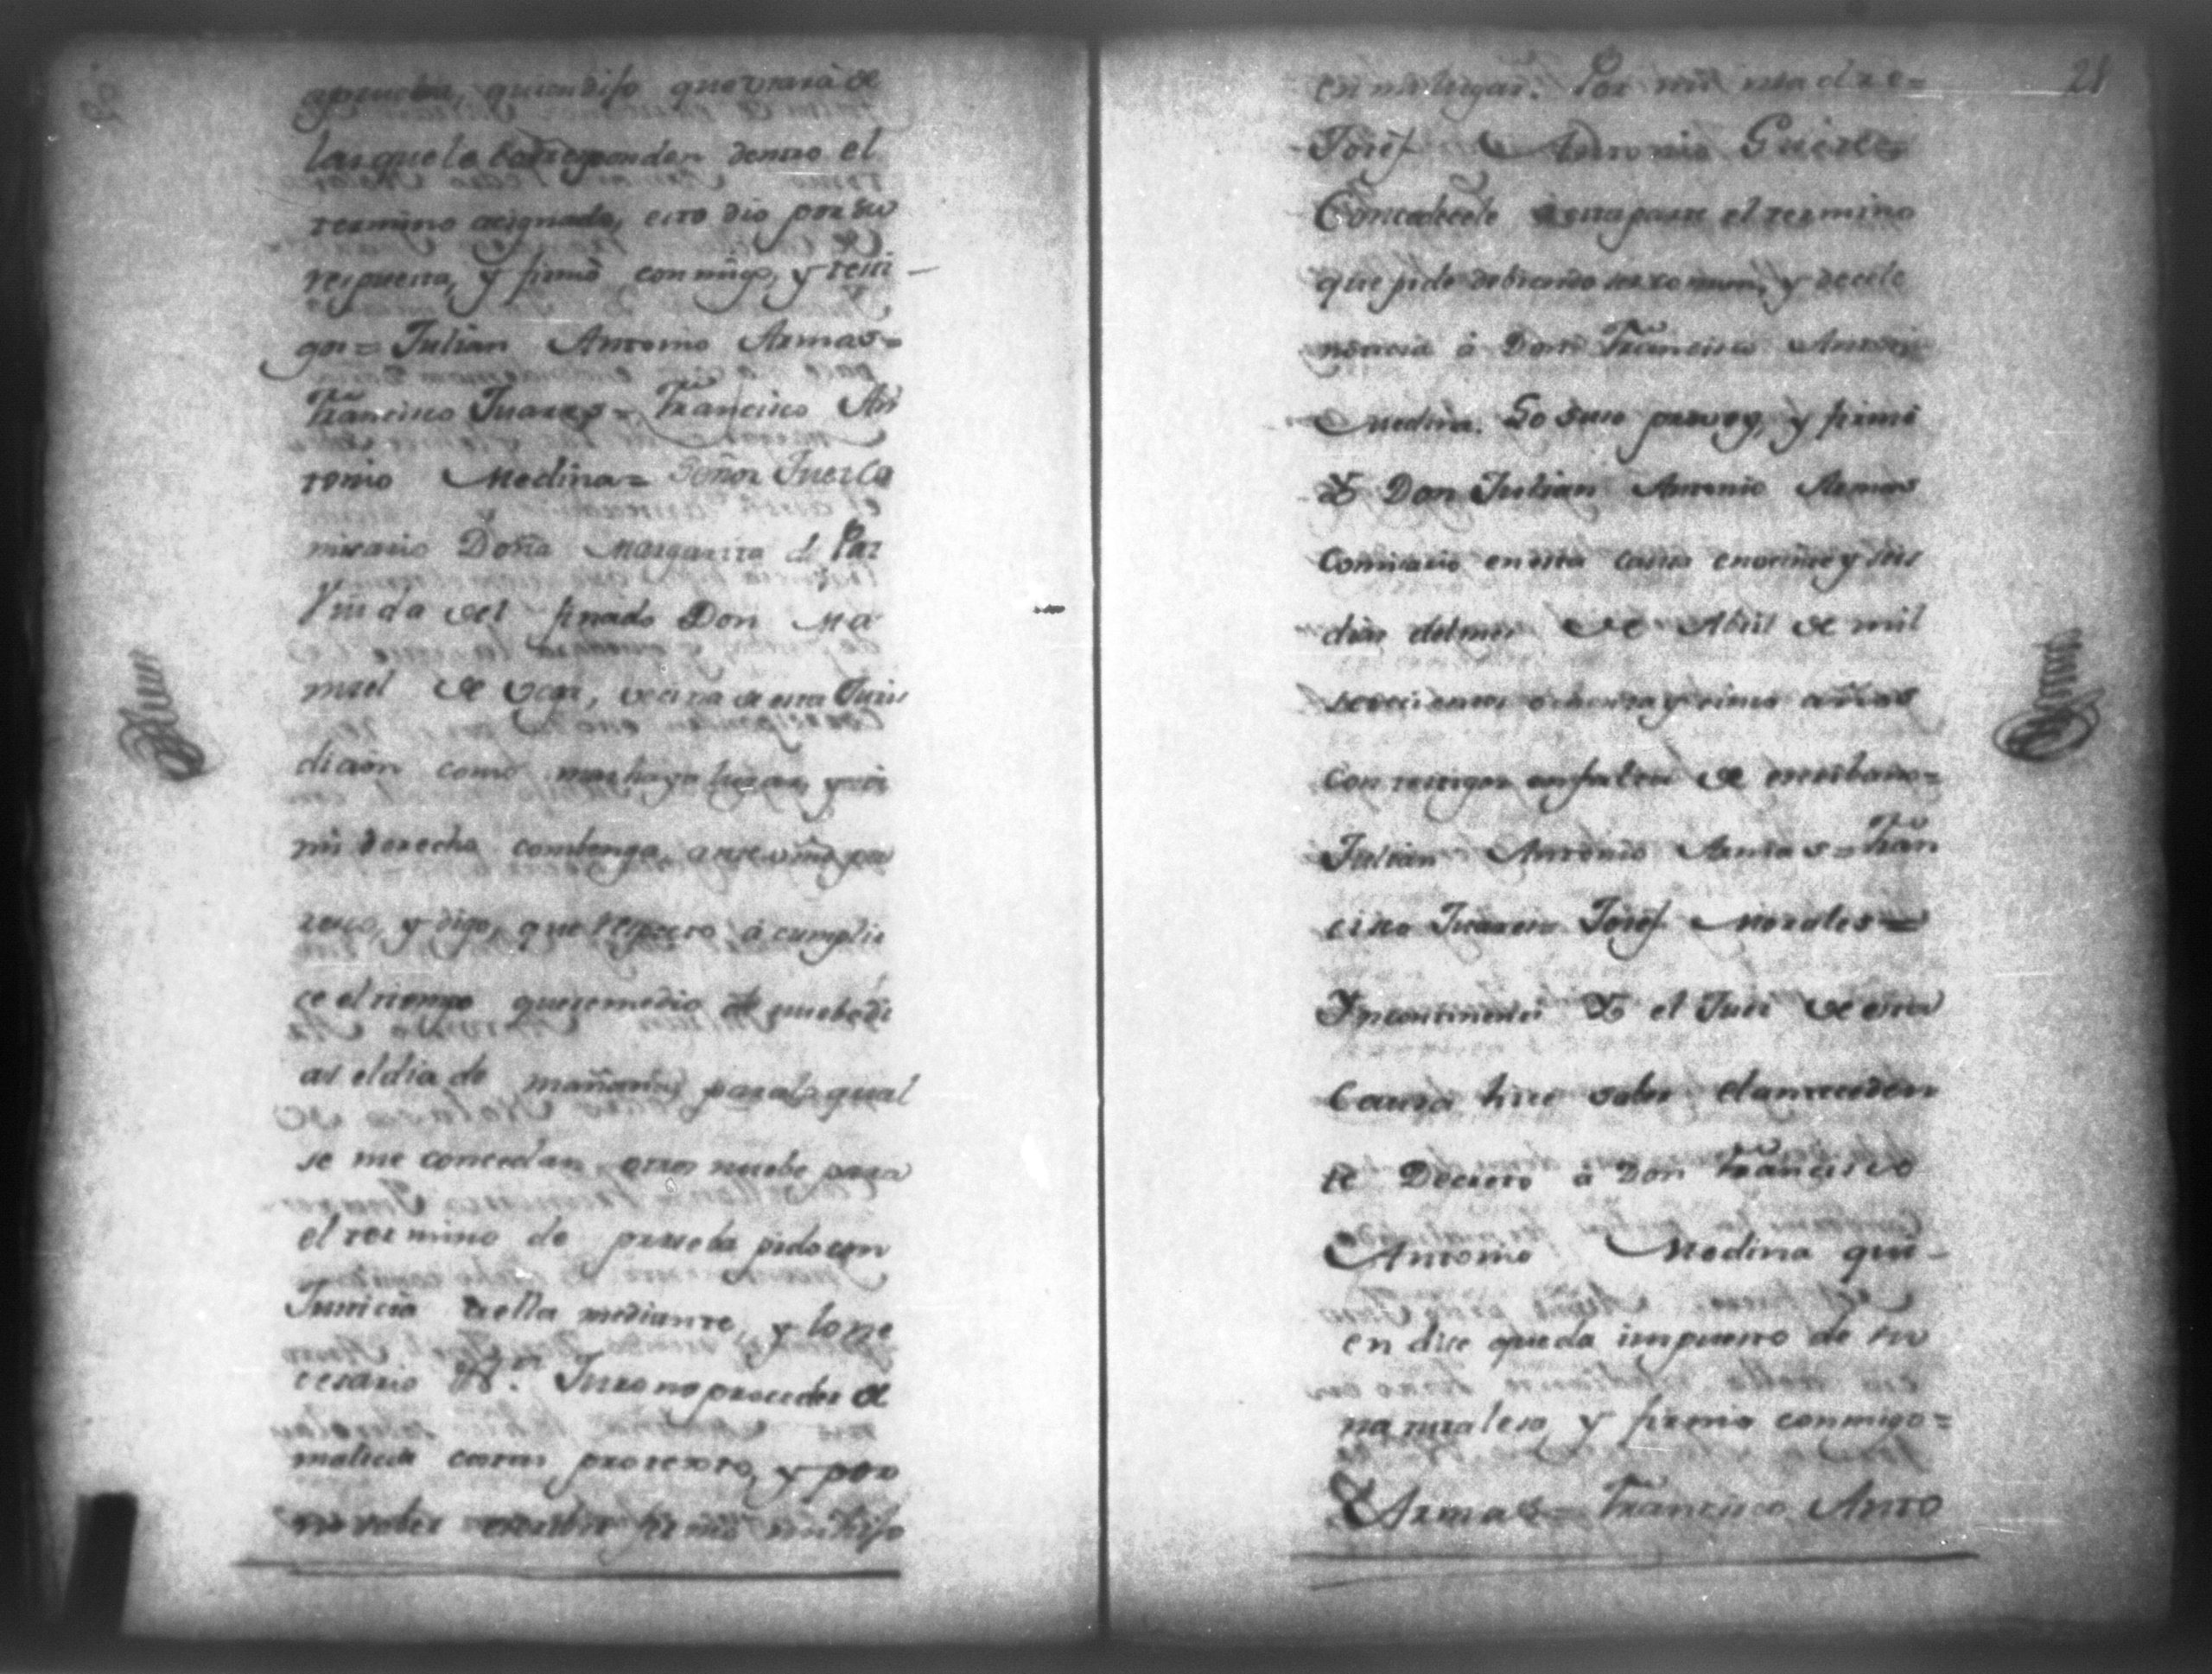 aprueba, quien dijo que usará de
las que le corresponden dentro el
termino asignado, esto dio por su
respuesta, y firmó conmigo, y testi
gos = Julian Antonio Armas =
Francisco Juares = Francisco An
tonio Medina = Señor Juez Co
misario Doña Margarita d Paz
Viuda del finado Don Ma
nuel de Vega, vecina de esta Juris
dicion como mas haya lugar, y a
mi derecho combenga, ante vmd pa
resco, y digo, que respecto á cumplir
ce el tiempo que remedio
as el dia de mañana, para lo qual
se me concedan otros nuebe para
el termino de prueba pido con
Justicia della mediante, y lo ne
cesario &ª. Juro no proceder de
malicia costas protesto, y por
no saber escribir firmó mi hijo
en mi lugar. Por mi madre =
Josef Antonio
Concedecele a esta parte el termino
que pide debiendo ser comun, y decele
noticia á Don Francisco Antoni
Medina. Lo provey, y firmé
Yo Don Julian Antonio Armas
Comisario en esta causa en veinte y seis
dias del mes de Abril de mil
setecientos ochenta y cinco años
con testigos en falta de escribano =
Julian Antonio Armas = Fran
cisco Juares Josef Morales =
Yncontinenti Yo el Juez de esta
Causa hice saber el anteceden
te Decreto á Don Francisco
Antonio Medina qui-
en dice queda impuesto de su
naturaleza, y firmó conmigo =
Armas = Francisco Anto